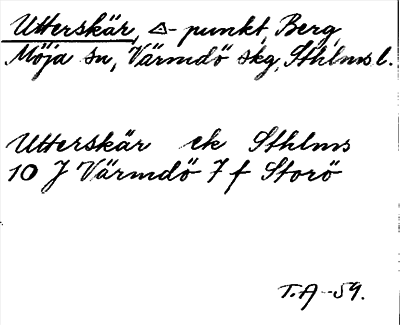 Utterskär, △-punkt, Berg,
Möja sn, Värmdö skg, Sthlms l.
Utterskär ek Sthlms
10 J Värmdö 7 f Storö
T.A -59.